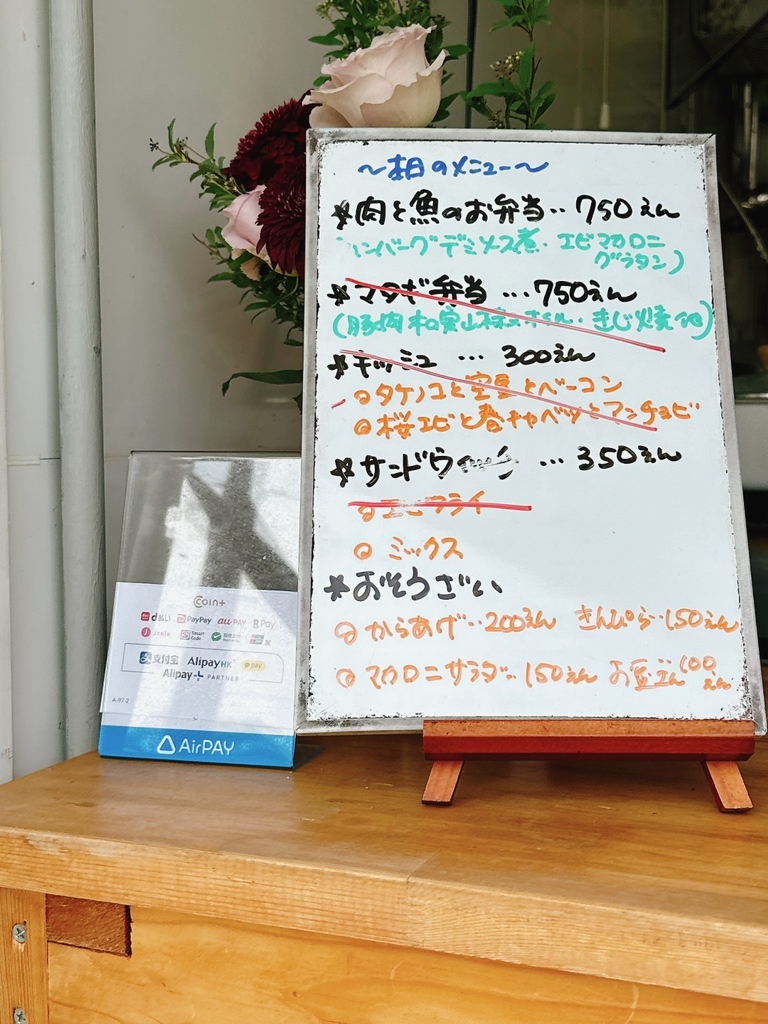 〜本日のメニュー〜
★肉と魚のお弁当‥750えん
ハンバーグデミソース煮・エビマカロニ
グラタン)
★マタギ弁当…750えん
(豚肉和実山椒・きじ焼他)
★キッシュ … 300えん
◎タケノコと空豆とベーコン
◎桜エビと春キャベツとアンチョビ
★サンドウィッチ … 350えん
◎エビフライ
◎ミックス
★おそうざい
◎からあげ‥200えん きんぴら‥150えん
◎マカロニサラダ‥150えん お玉ごはん100えん
COIN+
d払い PayPay au PAY
J-Coin Smart Code
支付宝 Alipay HK pay
Alipay+ PARTNER
A-97-2
AirPAY